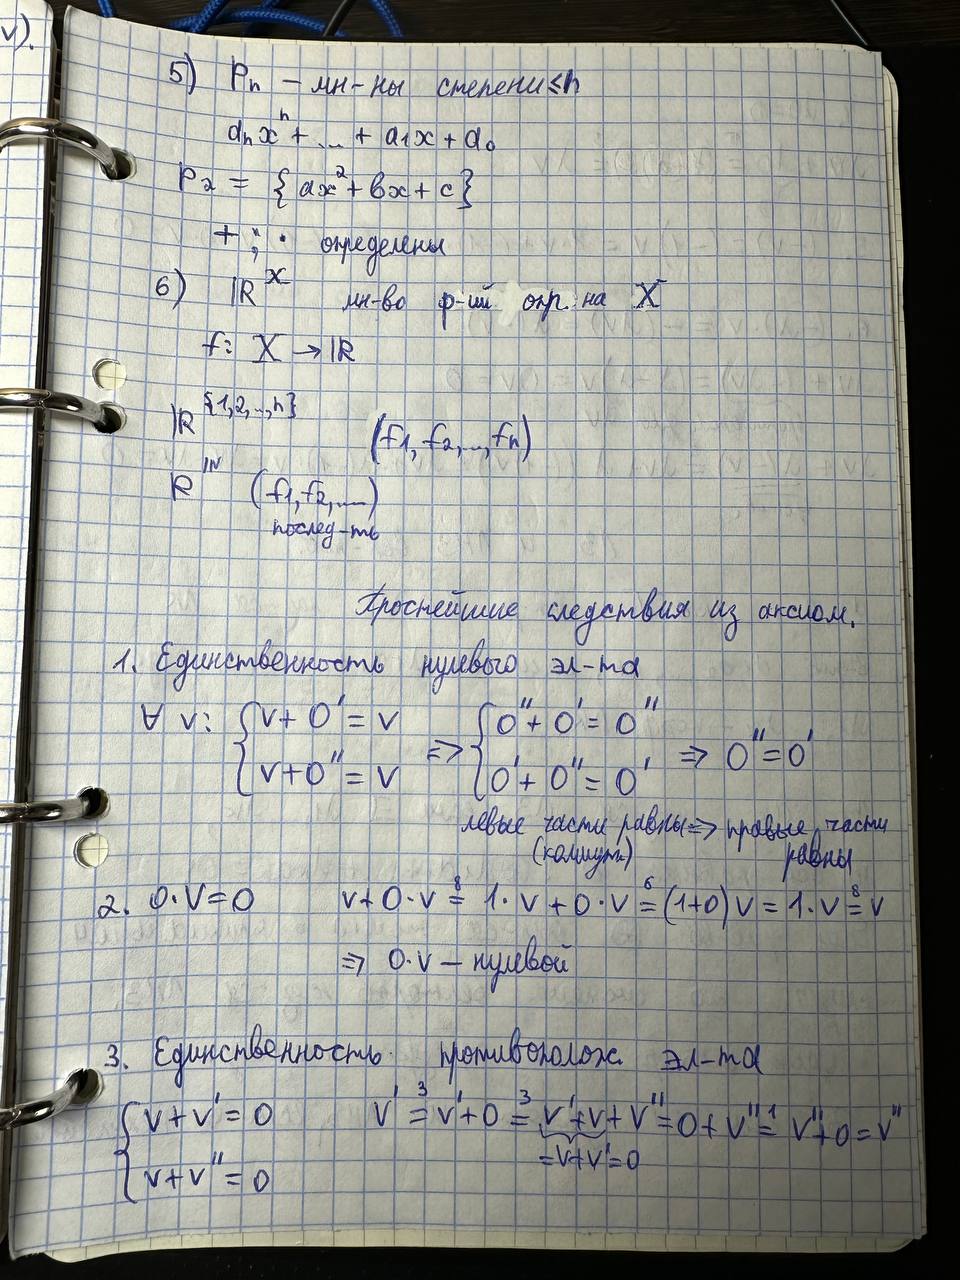 v).
5) Pₙ – мн-ны степени ≤ n
aₙxⁿ + ... + a₁x + a₀
P₂ = {ax² + bx + c}
+ ; "·" определены
6) ℝˣ мн-во ф-ий опр. на X
f: X → ℝ
ℝ^{1,2,..,n} (f₁, f₂, ..., fₙ)
ℝ^ℕ (f₁, f₂, ....)
послед-ть
Простейшие следствия из аксиом.
1. Единственность нулевого эл-та
∀ v: { v + 0' = v ⇒ { 0'' + 0' = 0'' ⇒ 0'' = 0'
v + 0'' = v 0' + 0'' = 0'
левые части равны ⇒ правые части
(коммут.) равны
2. 0·v = 0 v + 0·v =⁸ 1·v + 0·v =⁶ (1+0)v = 1·v =⁸ v
⇒ 0·v – нулевой
3. Единственность противополож. эл-та
{ v + v' = 0 v' =³ v' + 0 =³ v' + v + v'' = 0 + v'' =¹ v'' + 0 = v''
v + v'' = 0 = v + v' = 0